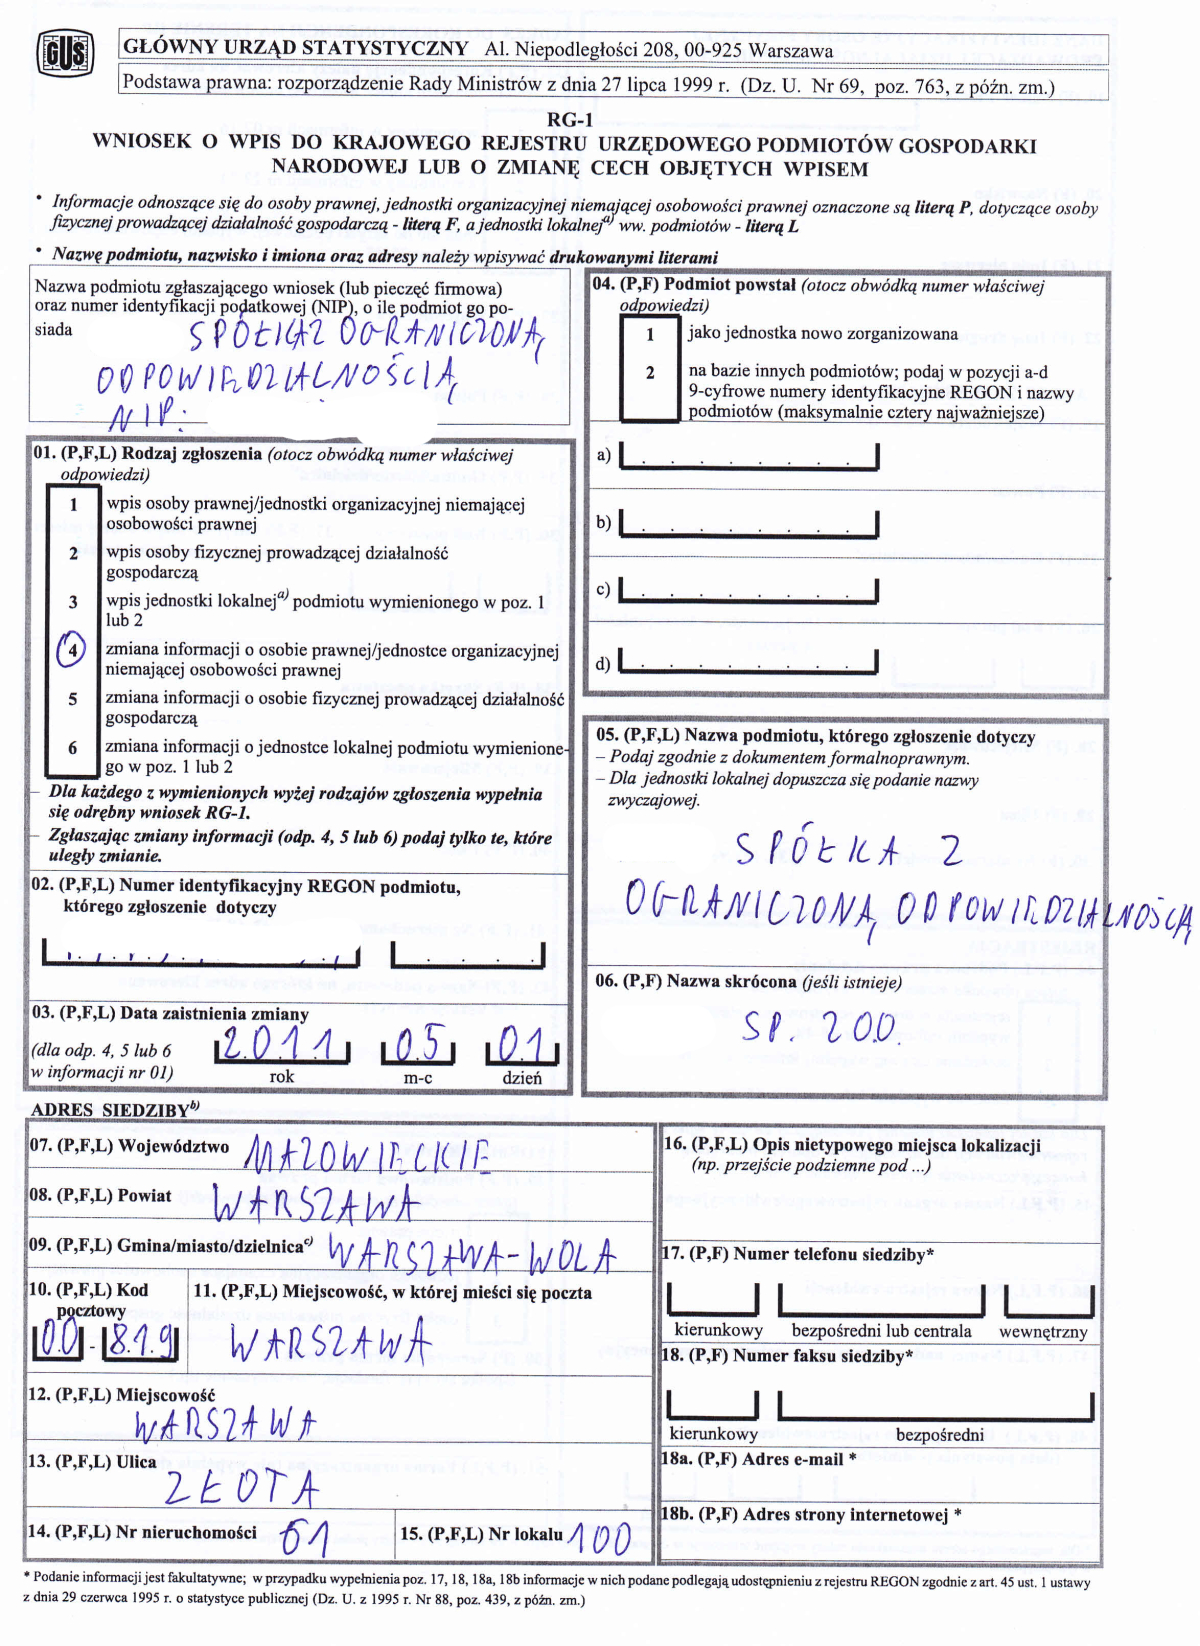 GUS
GŁÓWNY URZĄD STATYSTYCZNY Al. Niepodległości 208, 00-925 Warszawa
Podstawa prawna: rozporządzenie Rady Ministrów z dnia 27 lipca 1999 r. (Dz. U. Nr 69, poz. 763, z późn. zm.)
RG-1
WNIOSEK O WPIS DO KRAJOWEGO REJESTRU URZĘDOWEGO PODMIOTÓW GOSPODARKI
NARODOWEJ LUB O ZMIANĘ CECH OBJĘTYCH WPISEM
* Informacje odnoszące się do osoby prawnej, jednostki organizacyjnej niemającej osobowości prawnej oznaczone są literą P, dotyczące osoby
fizycznej prowadzącej działalność gospodarczą - literą F, a jednostki lokalnej a) ww. podmiotów - literą L
* Nazwę podmiotu, nazwisko i imiona oraz adresy należy wpisywać drukowanymi literami
Nazwa podmiotu zgłaszającego wniosek (lub pieczęć firmowa)
oraz numer identyfikacji podatkowej (NIP), o ile podmiot go po-
siada
SPÓŁKA Z OGRANICZONĄ
ODPOWIEDZIALNOŚCIĄ
NIP:
01. (P,F,L) Rodzaj zgłoszenia (otocz obwódką numer właściwej
odpowiedzi)
1 wpis osoby prawnej/jednostki organizacyjnej niemającej
osobowości prawnej
2 wpis osoby fizycznej prowadzącej działalność
gospodarczą
3 wpis jednostki lokalnej a) podmiotu wymienionego w poz. 1
lub 2
4 zmiana informacji o osobie prawnej/jednostce organizacyjnej
niemającej osobowości prawnej
5 zmiana informacji o osobie fizycznej prowadzącej działalność
gospodarczą
6 zmiana informacji o jednostce lokalnej podmiotu wymienione-
go w poz. 1 lub 2
– Dla każdego z wymienionych wyżej rodzajów zgłoszenia wypełnia
się odrębny wniosek RG-1.
– Zgłaszając zmiany informacji (odp. 4, 5 lub 6) podaj tylko te, które
uległy zmianie.
02. (P,F,L) Numer identyfikacyjny REGON podmiotu,
którego zgłoszenie dotyczy
03. (P,F,L) Data zaistnienia zmiany
(dla odp. 4, 5 lub 6
w informacji nr 01)
2011 05 01
rok m-c dzień
04. (P,F) Podmiot powstał (otocz obwódką numer właściwej
odpowiedzi)
1 jako jednostka nowo zorganizowana
2 na bazie innych podmiotów; podaj w pozycji a-d
9-cyfrowe numery identyfikacyjne REGON i nazwy
podmiotów (maksymalnie cztery najważniejsze)
a)
b)
c)
d)
05. (P,F,L) Nazwa podmiotu, którego zgłoszenie dotyczy
– Podaj zgodnie z dokumentem formalnoprawnym.
– Dla jednostki lokalnej dopuszcza się podanie nazwy
zwyczajowej.
SPÓŁKA Z
OGRANICZONĄ ODPOWIEDZIALNOŚCIĄ
06. (P,F) Nazwa skrócona (jeśli istnieje)
SP. Z O.O.
ADRES SIEDZIBY b)
07. (P,F,L) Województwo MAZOWIECKIE
08. (P,F,L) Powiat WARSZAWA
09. (P,F,L) Gmina/miasto/dzielnica c) WARSZAWA-WOLA
10. (P,F,L) Kod
pocztowy
00-819
11. (P,F,L) Miejscowość, w której mieści się poczta
WARSZAWA
12. (P,F,L) Miejscowość
WARSZAWA
13. (P,F,L) Ulica
ZŁOTA
14. (P,F,L) Nr nieruchomości 61
15. (P,F,L) Nr lokalu 100
16. (P,F,L) Opis nietypowego miejsca lokalizacji
(np. przejście podziemne pod ...)
17. (P,F) Numer telefonu siedziby*
kierunkowy bezpośredni lub centrala wewnętrzny
18. (P,F) Numer faksu siedziby*
kierunkowy bezpośredni
18a. (P,F) Adres e-mail *
18b. (P,F) Adres strony internetowej *
* Podanie informacji jest fakultatywne; w przypadku wypełnienia poz. 17, 18, 18a, 18b informacje w nich podane podlegają udostępnieniu z rejestru REGON zgodnie z art. 45 ust. 1 ustawy
z dnia 29 czerwca 1995 r. o statystyce publicznej (Dz. U. z 1995 r. Nr 88, poz. 439, z późn. zm.)